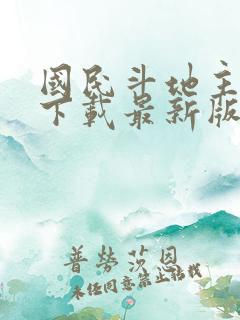 國民斗地主
下載最新版
普勞莎恩
未任同意禁止轉載